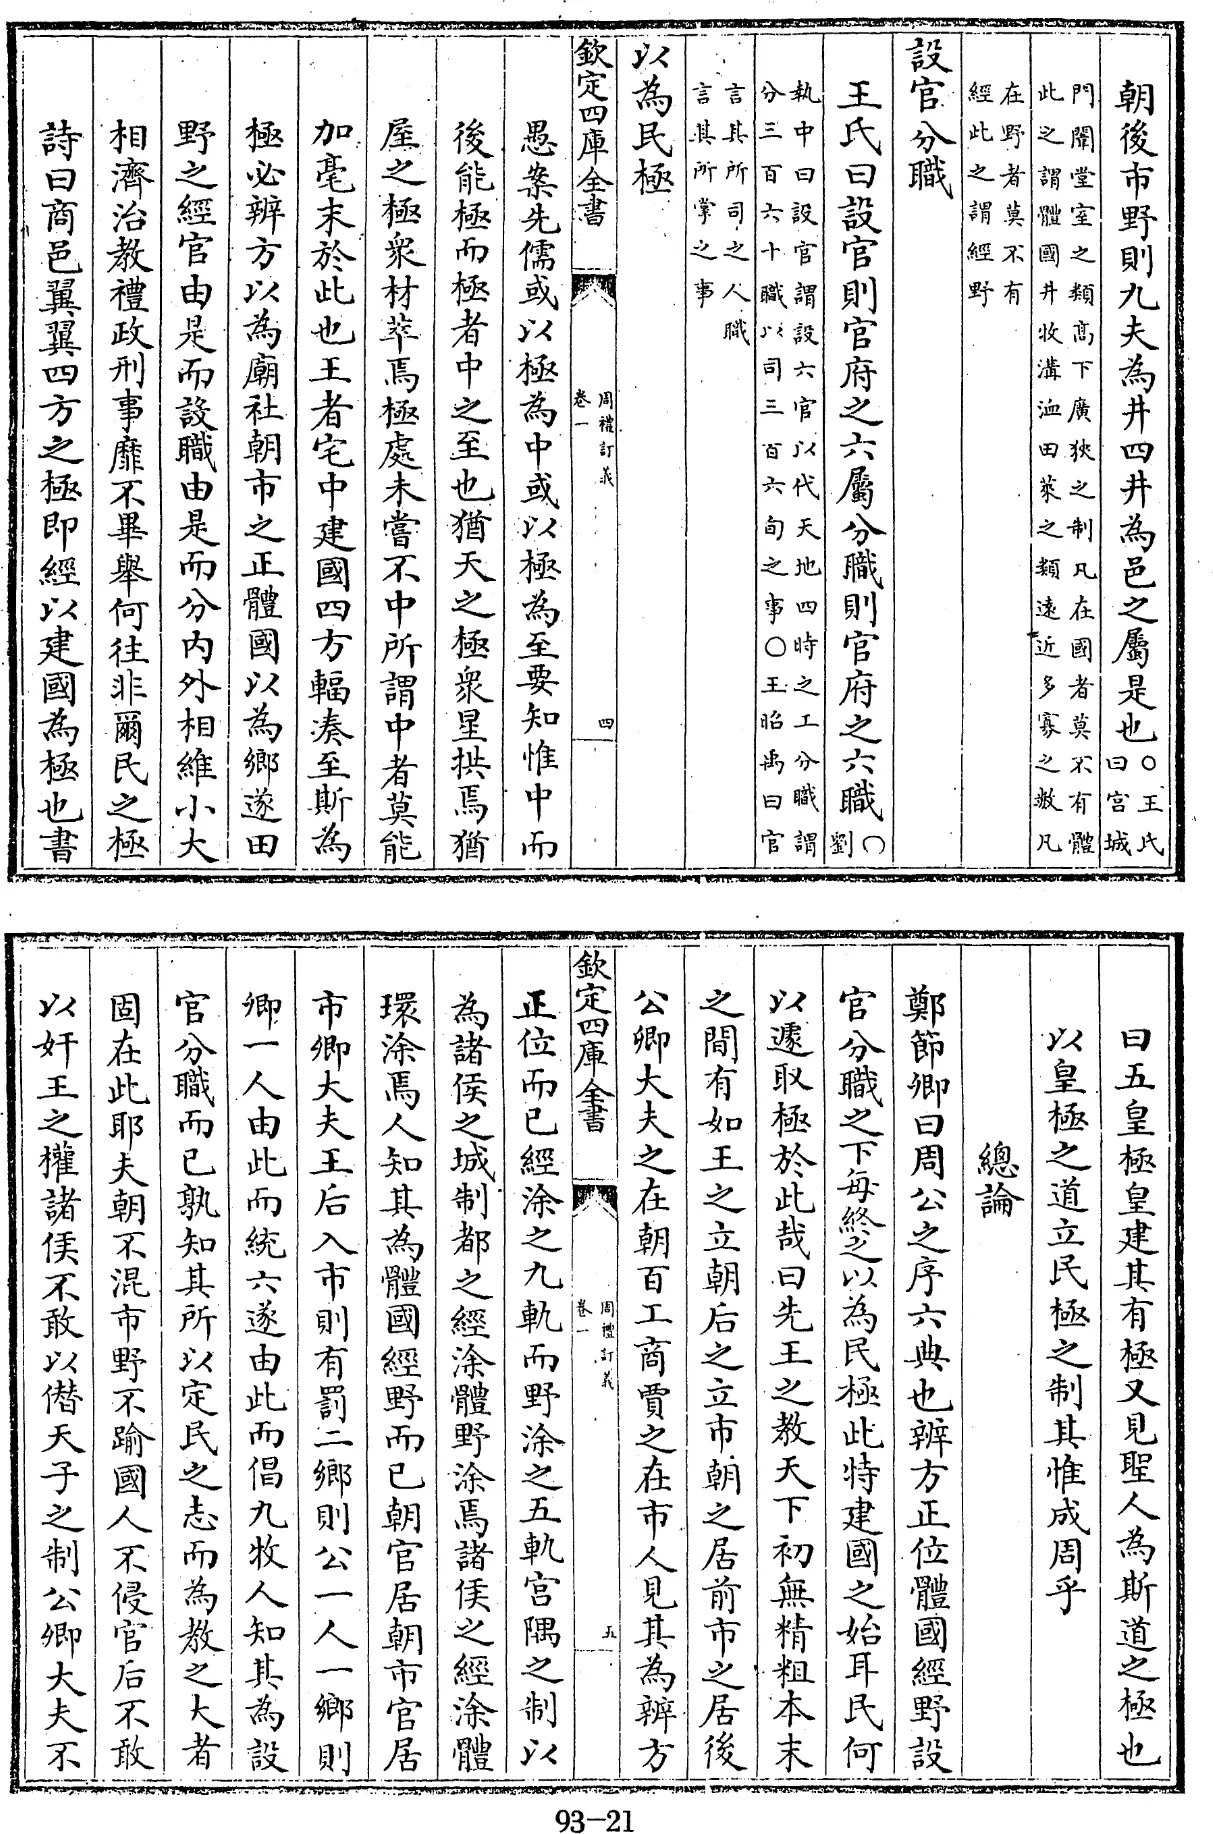 朝後市野則九夫為井四井為邑之屬是也○王氏曰宫城
門闈堂室之類高下廣狹之制凡在國者莫不有體
此之謂體國井牧溝洫田萊之類遠近多寡之數凡
在野者莫不有
經此之謂經野
設官分職
王氏曰設官則官府之六屬分職則官府之六職○劉
執中曰設官謂設六官以代天地四時之工分職謂
分三百六十職以司三百六旬之事○王昭禹曰官
言其所司之人職
言其所掌之事
以為民極
欽定四庫全書
周禮訂義
卷一
四
愚案先儒或以極為中或以極為至要知惟中而
後能極而極者中之至也猶天之極衆星拱焉猶
屋之極衆材萃焉極處未嘗不中所謂中者莫能
加毫末於此也王者宅中建國四方輻凑至斯為
極必辨方以為廟社朝市之正體國以為鄉遂田
野之經官由是而設職由是而分内外相維小大
相濟治教禮政刑事靡不畢舉何往非爾民之極
詩曰商邑翼翼四方之極即經以建國為極也書
曰五皇極皇建其有極又見聖人為斯道之極也
以皇極之道立民極之制其惟成周乎
總論
鄭節卿曰周公之序六典也辨方正位體國經野設
官分職之下每終之以為民極此特建國之始耳民何
以遽取極於此哉曰先王之教天下初無精粗本末
之間有如王之立朝后之立市朝之居前市之居後
公卿大夫之在朝百工商賈之在市人見其為辨方
欽定四庫全書
周禮訂義
卷一
五
正位而已經涂之九軌而野涂之五軌宫隅之制以
為諸侯之城制都之經涂體野涂焉諸侯之經涂體
環涂焉人知其為體國經野而已朝官居朝市官居
市卿大夫王后入市則有罰二鄉則公一人一鄉則
卿一人由此而統六遂由此而倡九牧人知其為設
官分職而已孰知其所以定民之志而為教之大者
固在此耶夫朝不混市野不踰國人不侵官后不敢
以奸王之權諸侯不敢以僭天子之制公卿大夫不
93-21